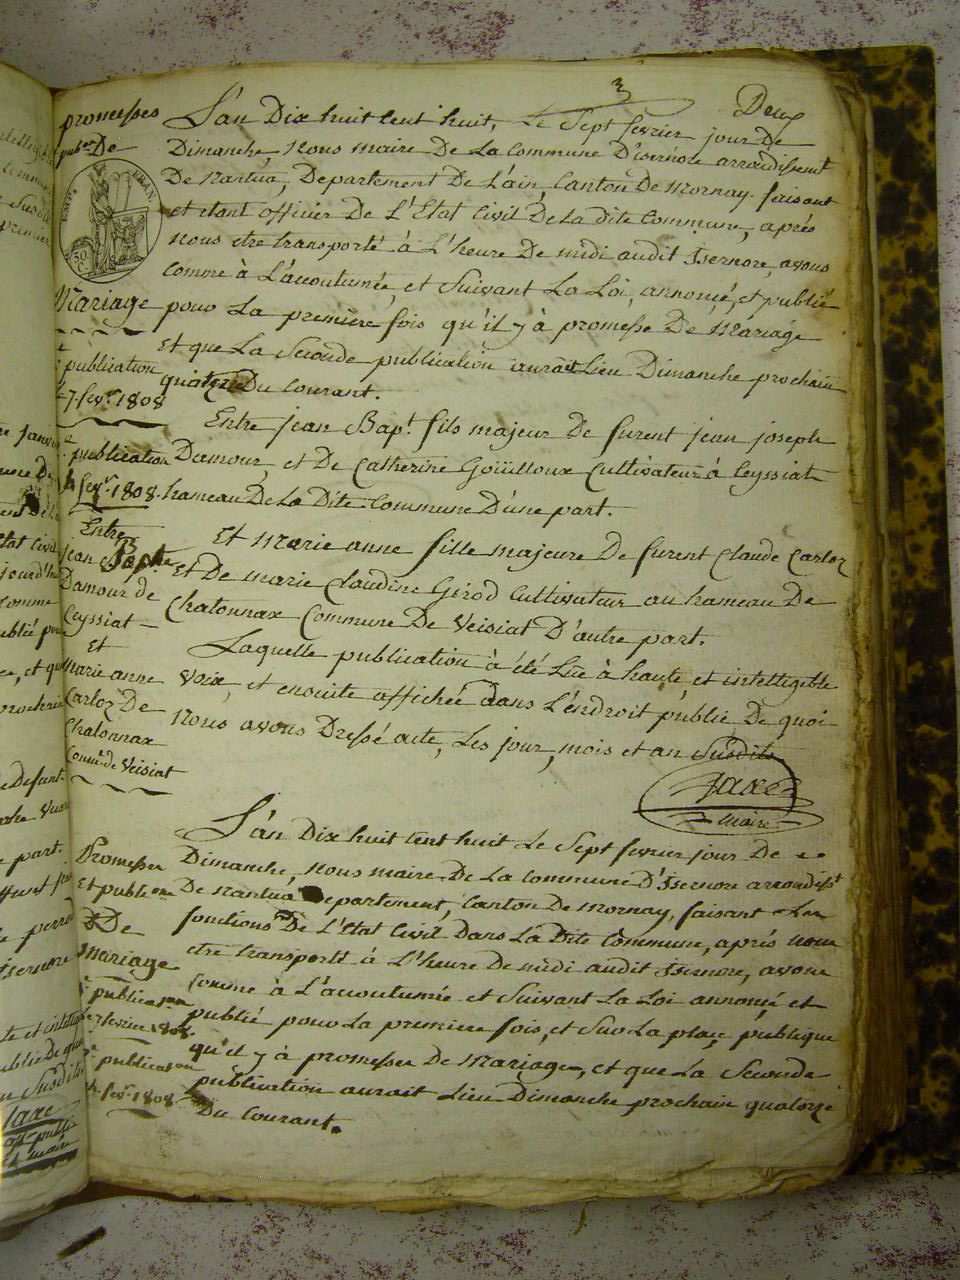 3
Deux
promesses
publ.on De
Mariage
publication
7 fev.r 1808
publication
fev.r 1808
Entre
jean Bapte
Damour de
Ceyssiat
Et
Marie anne
Carloz De
Chatonnax
Comm.e de Veisiat
L'an Dix huit cent huit, Le Sept fevrier jour De
Dimanche Nous maire De La Commune D'isernore arrondissent
De Nantua, Departement De L'ain, Canton De Mornay faisant
et etant officier De L'Etat Civil De La dite Commune, après
nous etre transporté à L'heure De midi audit Isernore, avons
comme à L'acoutumée, et Suivant La Loi, annoncé, et publié
pour La première fois qu'il y à promesse De Mariage
Et que La Seconde publication auroit Lieu Dimanche prochain
quatorze Du Courant.
Entre jean Bapt. fils majeur De furent jean joseph
Damour, et De Catherine Goüilloux Cultivateur à Ceyssiat
hameau De La Dite Commune D'une part.
Et Marie anne fille majeure De furent Claude Carloz
Et De marie Claudine Girod Cultivateur au hameau De
Chatonnax Commune De Veisiat D'autre part.
Laquelle publication à été Lüe à haute, et intelligible
voix, et ensuite affichée dans L'endroit public De quoi
Nous avons Dressé acte, Les jour, mois et an Susdits
maire
Promesses
Et publ.on
De
Mariage
publication
fevrier 1808
publication
fev.r 1808
L'an Dix huit cent huit Le Sept fevrier jour De
Dimanche, nous maire De La Commune D'Isernore arrondisst
De Nantua Departement, Canton De Mornay, faisant Les
fonctions De L'Etat Civil Dans La Dite Commune, après nous
etre transporté à L'heure De midi audit Isernore, avons
Comme à L'acoutumée et Suivant La Loi annoncé, et
publié pour La premiere fois, et Sur La place publique
qu'il y à promesses De Mariage, et que La Seconde
publication aurait Lieu Dimanche prochain quatorze
Du Courant.